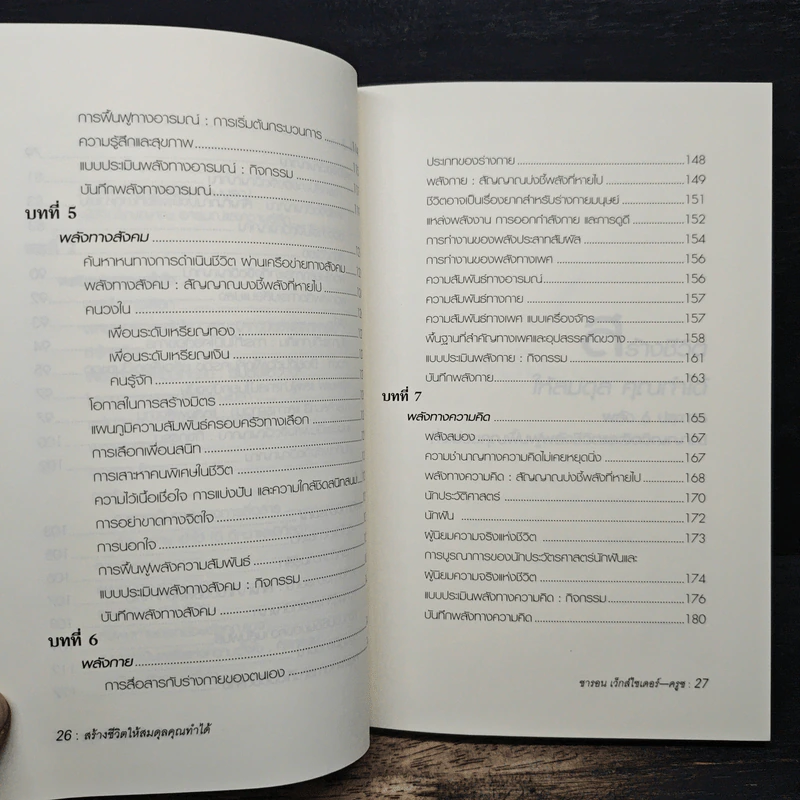 การฟื้นฟูทางอารมณ์ : การเริ่มต้นกระบวนการ
ความรู้สึกและสุขภาพ
แบบประเมินพลังทางอารมณ์ : กิจกรรม
บันทึกพลังทางอารมณ์
บทที่ 5
พลังทางสังคม
ค้นหาหนทางการดำเนินชีวิต ผ่านเครือข่ายทางสังคม
พลังทางสังคม : สัญญาณบ่งชี้พลังที่หายไป
คนวงใน
เพื่อนระดับเหรียญทอง
เพื่อนระดับเหรียญเงิน
คนรู้จัก
โอกาสในการสร้างมิตร
แผนภูมิความสัมพันธ์ครอบครัวทางเลือก
การเลือกเพื่อนสนิท
การเสาะหาคนพิเศษในชีวิต
ความไว้เนื้อเชื่อใจ การแบ่งปัน และความใกล้ชิดสนิทสนม
การอย่าขาดทางจิตใจ
การนอกใจ
การฟื้นฟูพลังความสัมพันธ์
แบบประเมินพลังทางสังคม : กิจกรรม
บันทึกพลังทางสังคม
บทที่ 6
พลังกาย
การสื่อสารกับร่างกายของตนเอง
26 : สร้างชีวิตให้สมดุลคุณทำได้
ประเภทของร่างกาย 148
พลังกาย : สัญญาณบ่งชี้พลังที่หายไป 149
ชีวิตอาจเป็นเรื่องยากสำหรับร่างกายมนุษย์ 151
แหล่งพลังงาน การออกกำลังกาย และการดูดี 152
การทำงานของพลังประสาทสัมผัส 154
การทำงานของพลังทางเพศ 156
ความสัมพันธ์ทางอารมณ์ 156
ความสัมพันธ์ทางกาย 157
ความสัมพันธ์ทางเพศ แบบเครื่องจักร 157
พื้นฐานที่สำคัญทางเพศและอุปสรรคกีดขวาง 158
แบบประเมินพลังกาย : กิจกรรม 161
บันทึกพลังกาย 163
บทที่ 7
พลังทางความคิด 165
พลังสมอง 167
ความชำนาญทางความคิดไม่เคยหยุดนิ่ง 167
พลังทางความคิด : สัญญาณบ่งชี้พลังที่หายไป 168
นักประวัติศาสตร์ 170
นักฝัน 172
ผู้นิยมความจริงแห่งชีวิต 173
การบูรณาการของนักประวัตรศาสตร์นักฝันและ
ผู้นิยมความจริงแห่งชีวิต 174
แบบประเมินพลังทางความคิด : กิจกรรม 176
บันทึกพลังทางความคิด 180
ชารอน เว็กส์ไซเดอร์—ครูซ : 27